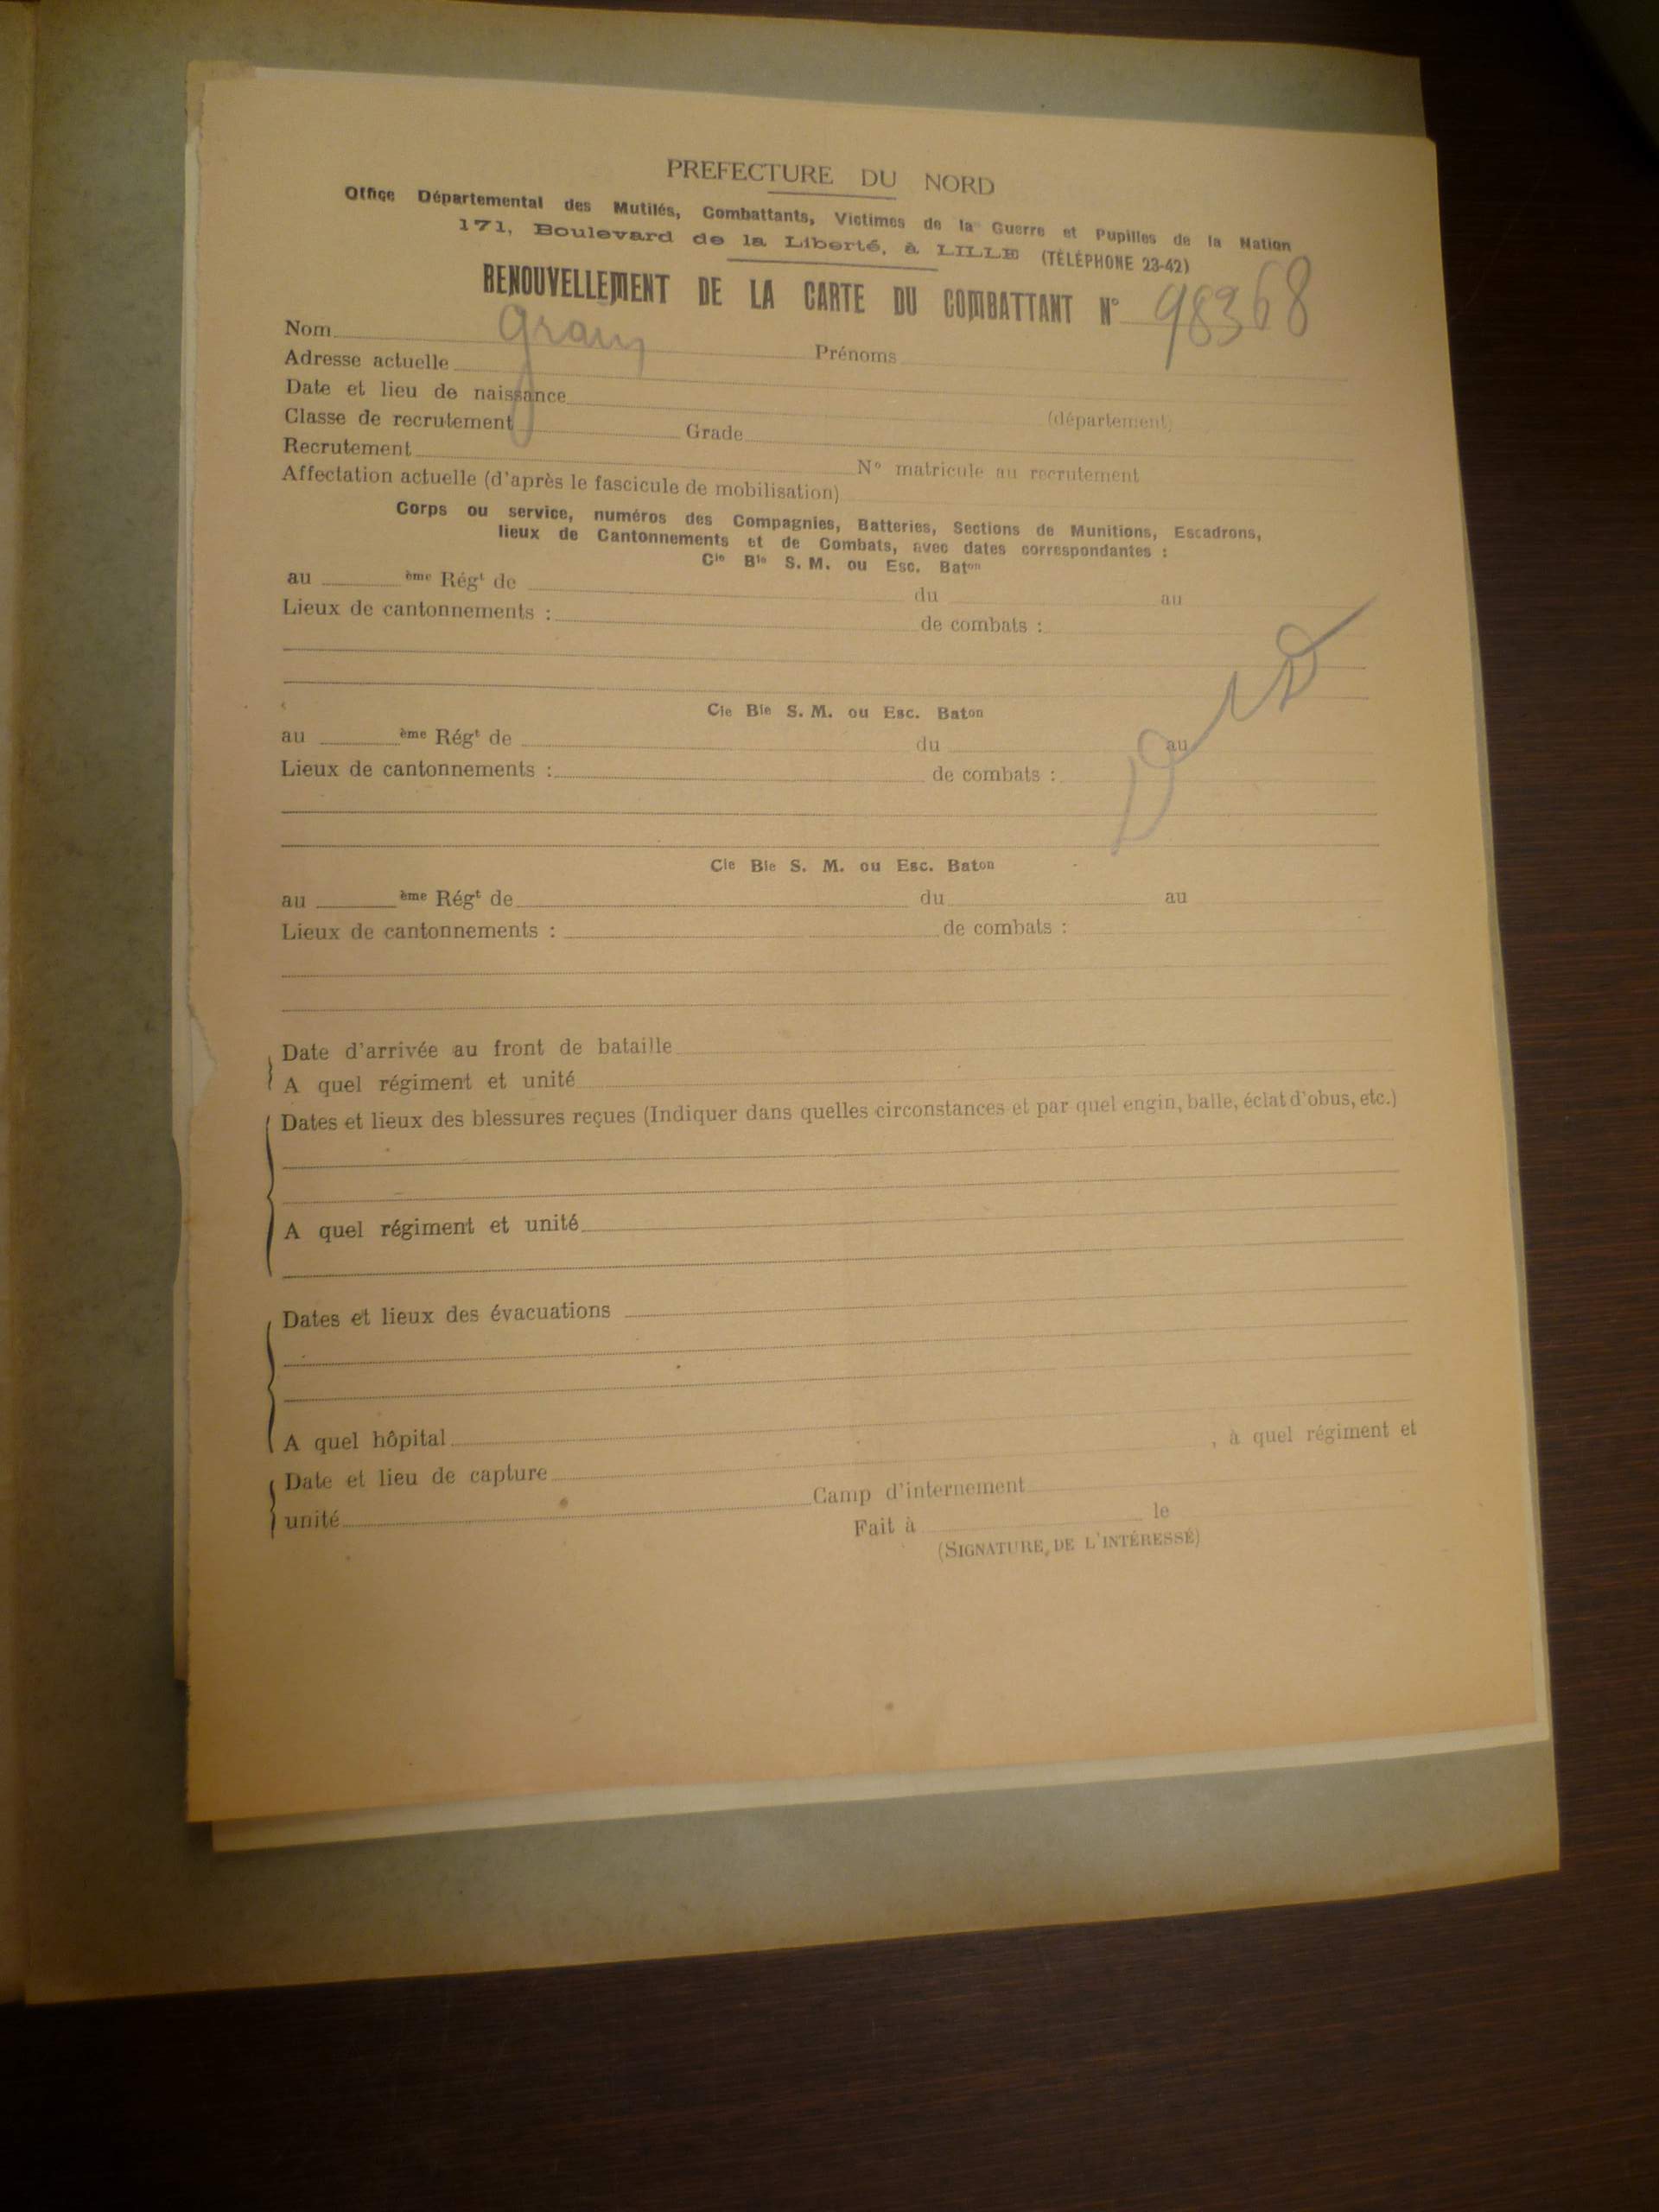 PREFECTURE DU NORD
Office Départemental des Mutilés, Combattants, Victimes de la Guerre et Pupilles de la Nation
171, Boulevard de la Liberté, à LILLE (TÉLÉPHONE 23-42)
RENOUVELLEMENT DE LA CARTE DU COMBATTANT N° 98368
Nom Prénoms
Adresse actuelle
Date et lieu de naissance
(département)
Classe de recrutement Grade
Recrutement N° matricule au recrutement
Affectation actuelle (d'après le fascicule de mobilisation)
Corps ou service, numéros des Compagnies, Batteries, Sections de Munitions, Escadrons,
lieux de Cantonnements et de Combats, avec dates correspondantes :
Cie Bie S. M. ou Esc. Baton
au ème Régt de du au
Lieux de cantonnements : de combats :
Cie Bie S. M. ou Esc. Baton
au ème Régt de du au
Lieux de cantonnements : de combats :
Cie Bie S. M. ou Esc. Baton
au ème Régt de du au
Lieux de cantonnements : de combats :
Date d'arrivée au front de bataille
A quel régiment et unité
Dates et lieux des blessures reçues (Indiquer dans quelles circonstances et par quel engin, balle, éclat d'obus, etc.)
A quel régiment et unité
Dates et lieux des évacuations
A quel hôpital
Date et lieu de capture , à quel régiment et
unité Camp d'internement
Fait à le
(SIGNATURE DE L'INTÉRESSÉ)